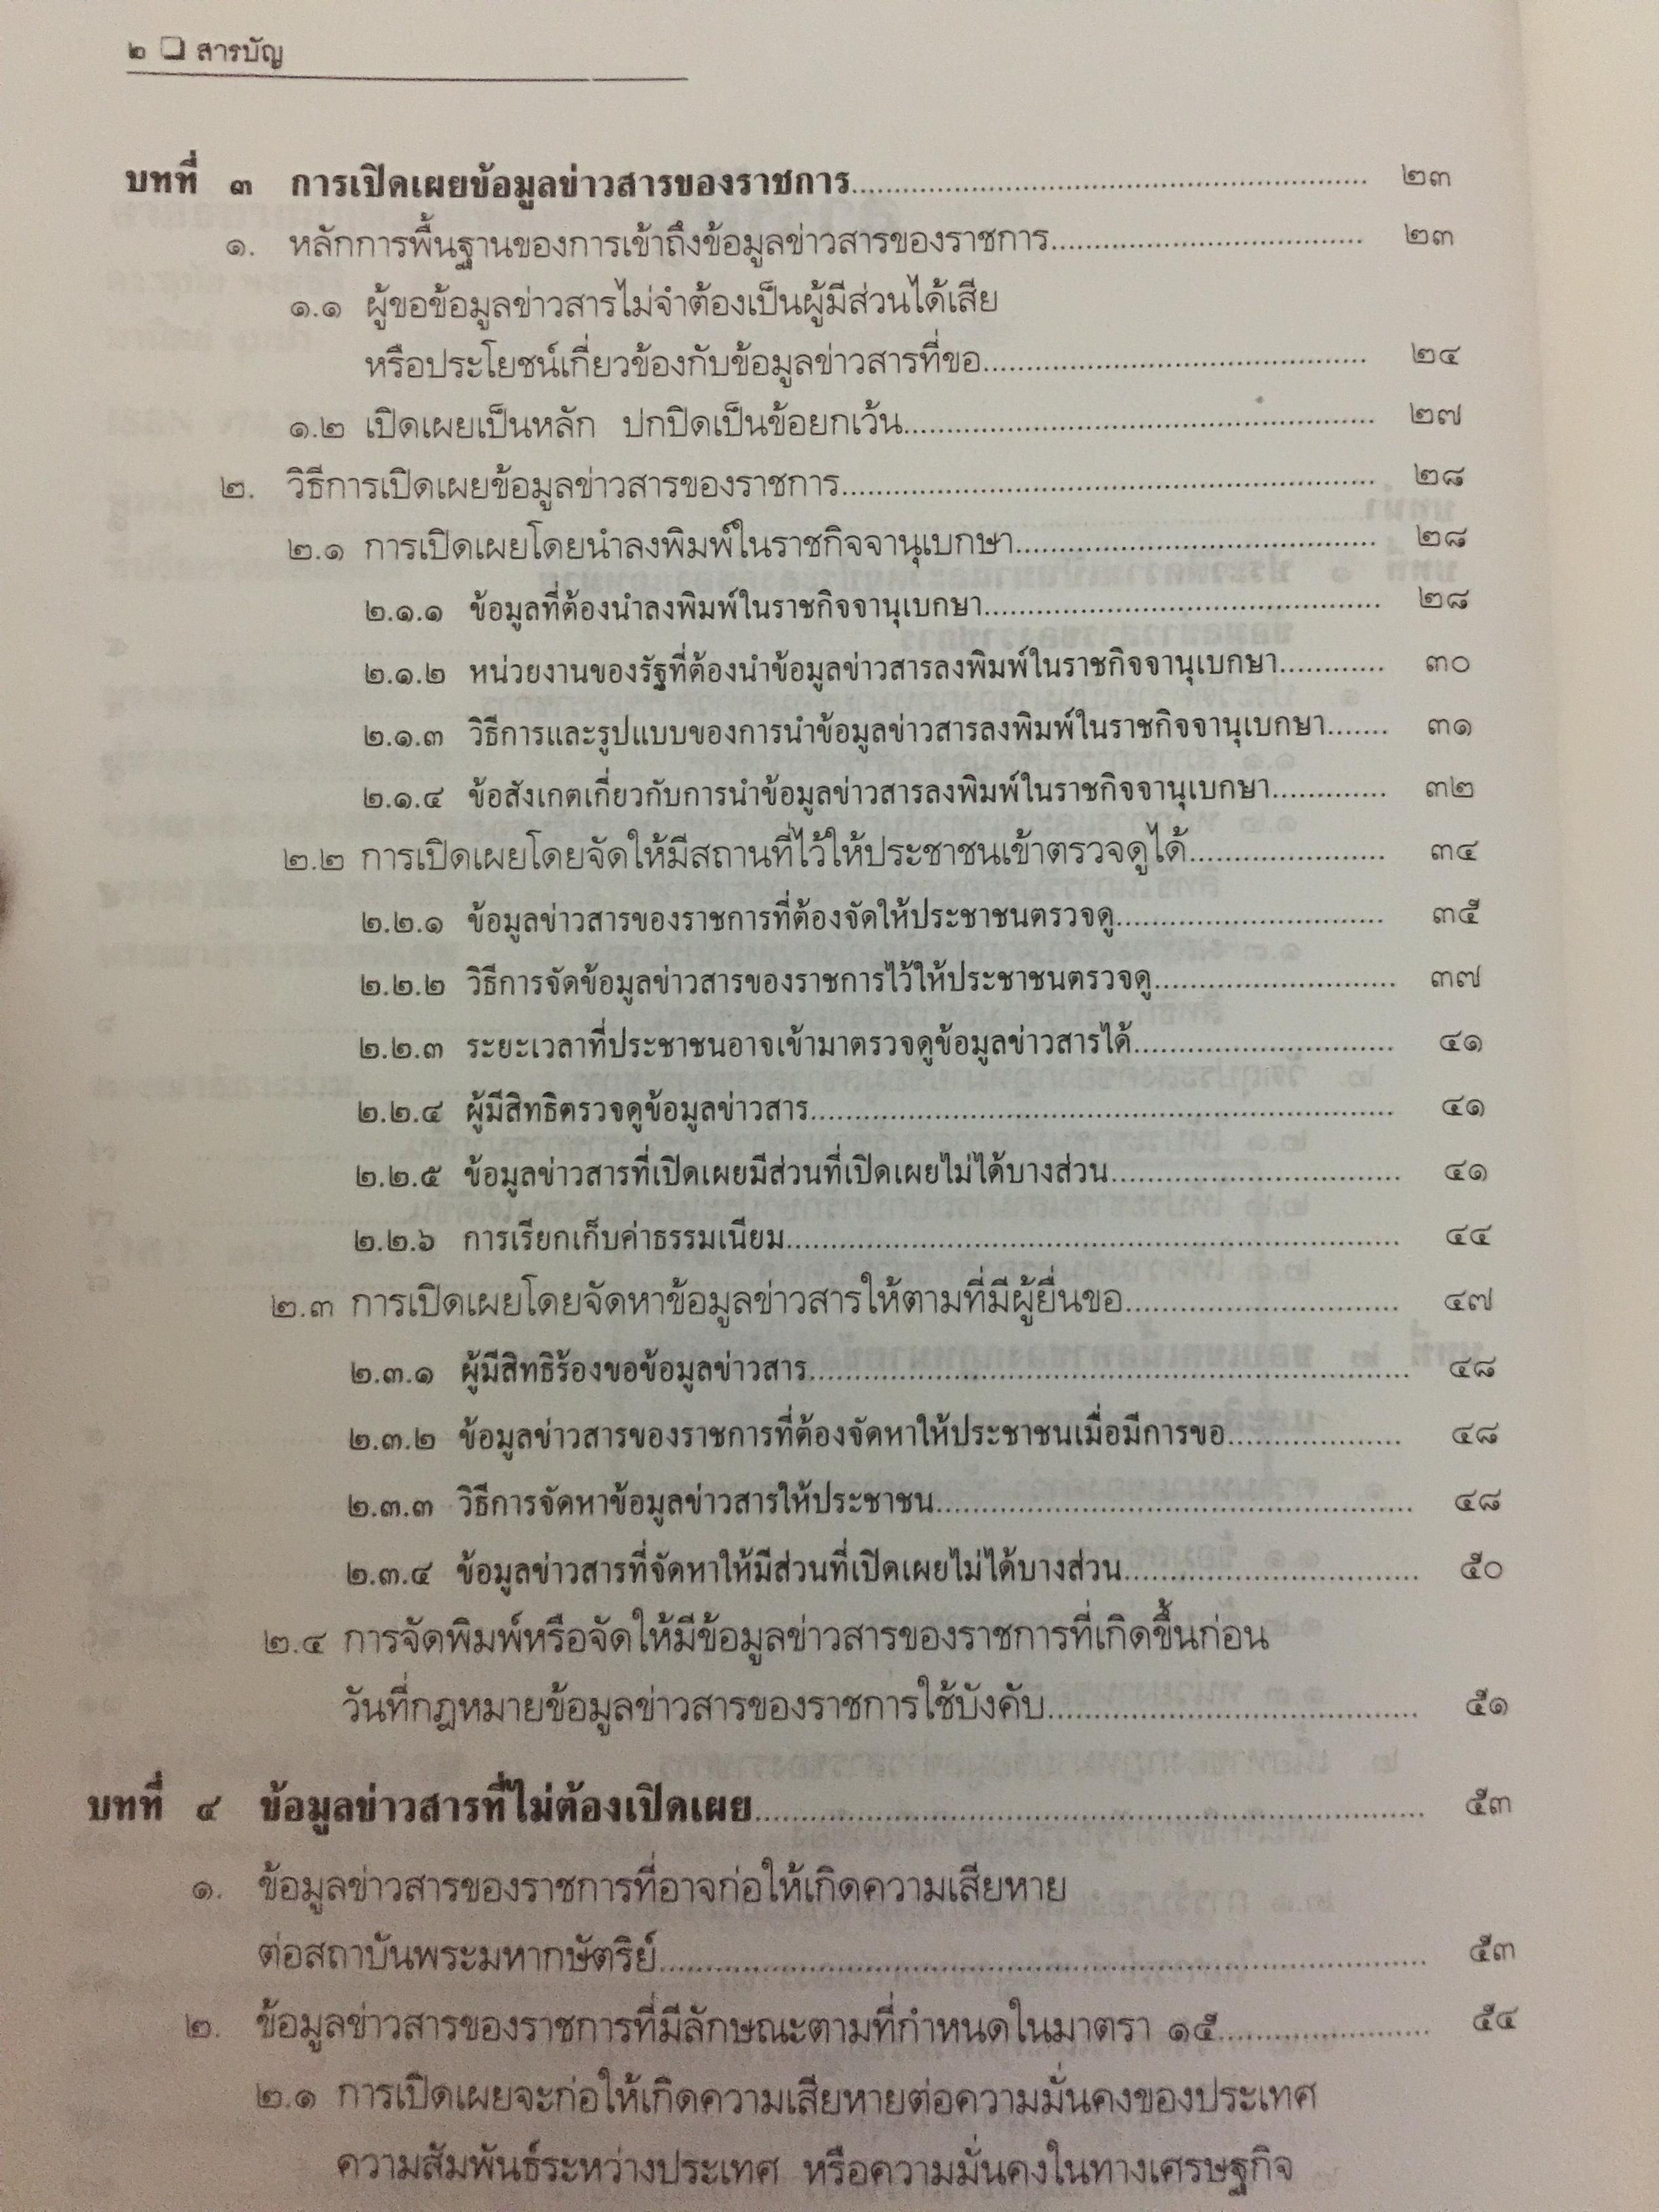 ๒ ❏ สารบัญ
บทที่ ๓ การเปิดเผยข้อมูลข่าวสารของราชการ ๒๓
๑. หลักการพื้นฐานของการเข้าถึงข้อมูลข่าวสารของราชการ ๒๓
๑.๑ ผู้ขอข้อมูลข่าวสารไม่จำต้องเป็นผู้มีส่วนได้เสีย
หรือประโยชน์เกี่ยวข้องกับข้อมูลข่าวสารที่ขอ ๒๔
๑.๒ เปิดเผยเป็นหลัก ปกปิดเป็นข้อยกเว้น ๒๗
๒. วิธีการเปิดเผยข้อมูลข่าวสารของราชการ ๒๘
๒.๑ การเปิดเผยโดยนำลงพิมพ์ในราชกิจจานุเบกษา ๒๘
๒.๑.๑ ข้อมูลที่ต้องนำลงพิมพ์ในราชกิจจานุเบกษา ๒๘
๒.๑.๒ หน่วยงานของรัฐที่ต้องนำข้อมูลข่าวสารลงพิมพ์ในราชกิจจานุเบกษา ๓๐
๒.๑.๓ วิธีการและรูปแบบของการนำข้อมูลข่าวสารลงพิมพ์ในราชกิจจานุเบกษา ๓๑
๒.๑.๔ ข้อสังเกตเกี่ยวกับการนำข้อมูลข่าวสารลงพิมพ์ในราชกิจจานุเบกษา ๓๒
๒.๒ การเปิดเผยโดยจัดให้มีสถานที่ไว้ให้ประชาชนเข้าตรวจดูได้ ๓๔
๒.๒.๑ ข้อมูลข่าวสารของราชการที่ต้องจัดให้ประชาชนตรวจดู ๓๕
๒.๒.๒ วิธีการจัดข้อมูลข่าวสารของราชการไว้ให้ประชาชนตรวจดู ๓๗
๒.๒.๓ ระยะเวลาที่ประชาชนอาจเข้ามาตรวจดูข้อมูลข่าวสารได้ ๔๑
๒.๒.๔ ผู้มีสิทธิตรวจดูข้อมูลข่าวสาร ๔๑
๒.๒.๕ ข้อมูลข่าวสารที่เปิดเผยมีส่วนที่เปิดเผยไม่ได้บางส่วน ๔๑
๒.๒.๖ การเรียกเก็บค่าธรรมเนียม ๔๔
๒.๓ การเปิดเผยโดยจัดหาข้อมูลข่าวสารให้ตามที่มีผู้ยื่นขอ ๔๗
๒.๓.๑ ผู้มีสิทธิร้องขอข้อมูลข่าวสาร ๔๘
๒.๓.๒ ข้อมูลข่าวสารของราชการที่ต้องจัดหาให้ประชาชนเมื่อมีการขอ ๔๘
๒.๓.๓ วิธีการจัดหาข้อมูลข่าวสารให้ประชาชน ๔๘
๒.๓.๔ ข้อมูลข่าวสารที่จัดหาให้มีส่วนที่เปิดเผยไม่ได้บางส่วน ๕๐
๒.๔ การจัดพิมพ์หรือจัดให้มีข้อมูลข่าวสารของราชการที่เกิดขึ้นก่อน
วันที่กฎหมายข้อมูลข่าวสารของราชการใช้บังคับ ๕๑
บทที่ ๔ ข้อมูลข่าวสารที่ไม่ต้องเปิดเผย ๕๓
๑. ข้อมูลข่าวสารของราชการที่อาจก่อให้เกิดความเสียหาย
ต่อสถาบันพระมหากษัตริย์ ๕๓
๒. ข้อมูลข่าวสารของราชการที่มีลักษณะตามที่กำหนดในมาตรา ๑๕ ๕๔
๒.๑ การเปิดเผยจะก่อให้เกิดความเสียหายต่อความมั่นคงของประเทศ
ความสัมพันธ์ระหว่างประเทศ หรือความมั่นคงในทางเศรษฐกิจ